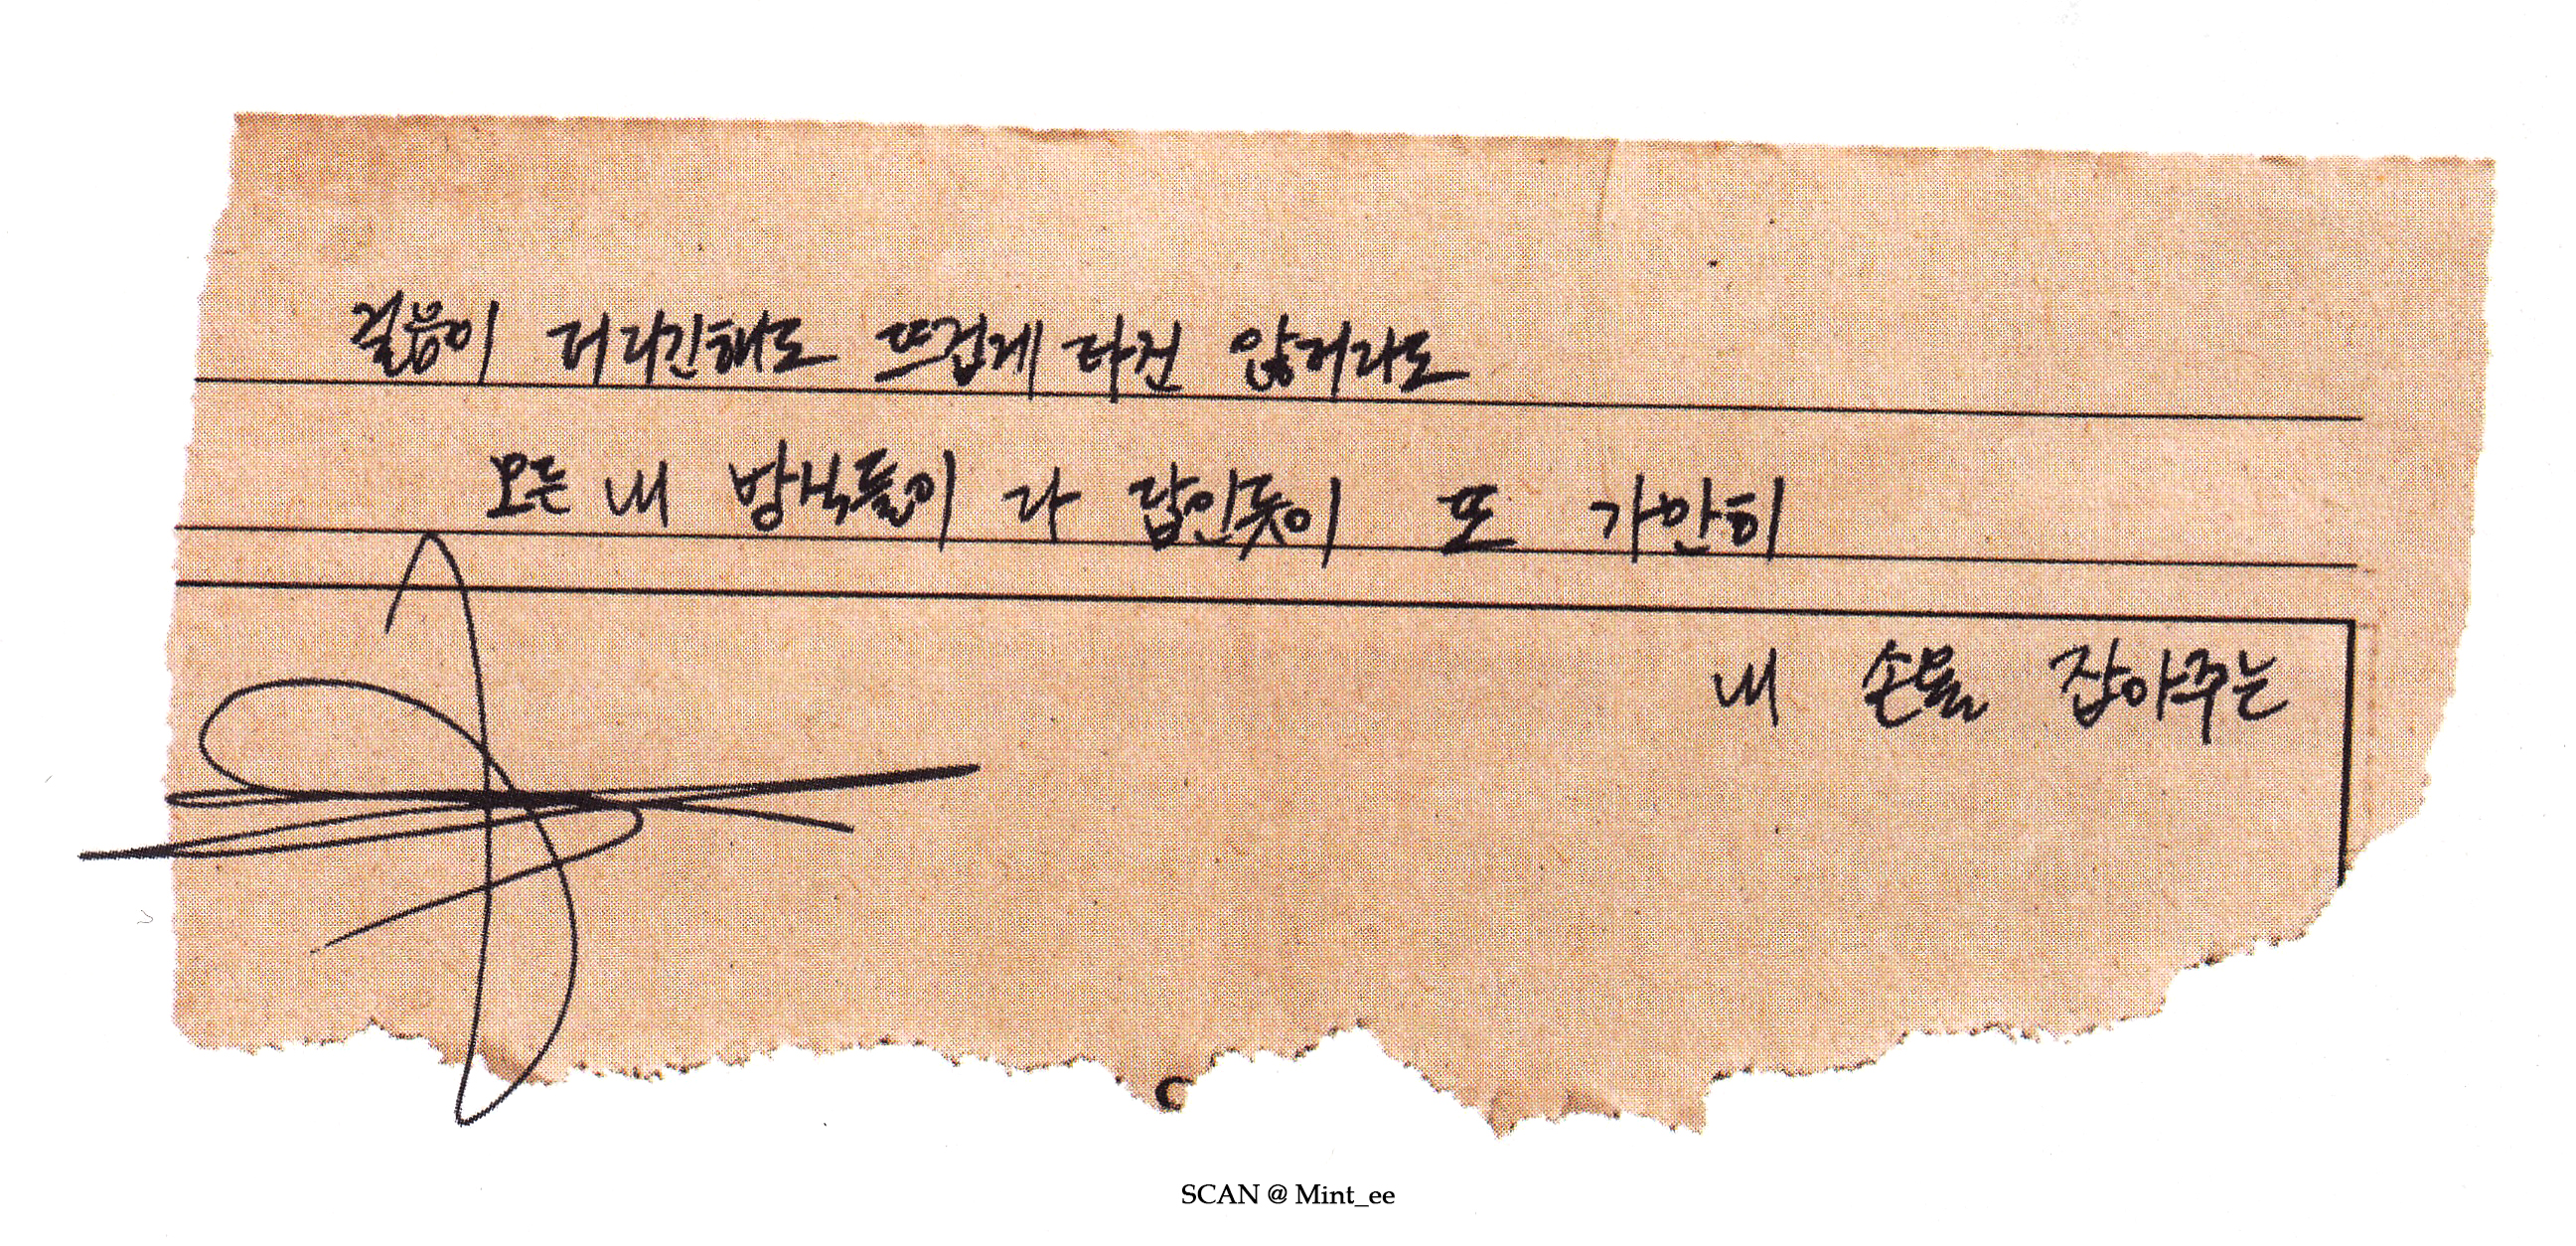 걸음이 더디긴해도 뜨겁게 타진 않더라도
모든 내 방식들이 다 답인듯이 또 가만히
내 손을 잡아주는
C
SCAN @ Mint_ee